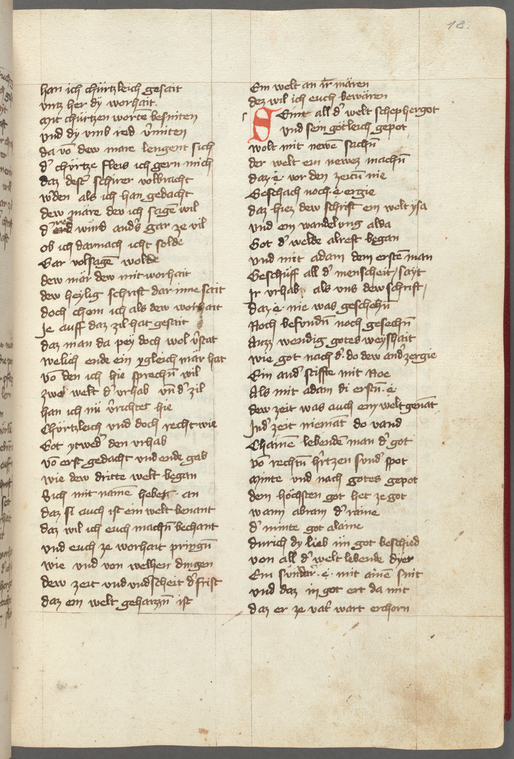 18.
han ich chürtzleich gesait
vntz her dy worhait.
mit chürtzen worten besniten
vnd dy vmb red vermiten
da vō dew mare lengent sich
d' chürtze fleis ich gern mich
daz dest schirer volbracht
w'den als ich han gedacht
dew mare der ich sagen wil
d' wirt wird and's gar ze vil
ob ich darnach icht solde
Gar volsagē wolde
dew mär dew mit worhait
dew heylig schrift dar inne sait
doch chom ich als dew worhait
Je auff daz zil hat gesait
daz man da pey doch wol v'stat
welich ende ein ygleich mär hat
vō den ich hie sprechē wil
zwo welt d' vrhab vn d' zil
han ich nu v'richtet hie
Chürtzleich vnd doch recht wie
Got ytwed' den vrhab
vō erst gedacht vnd ende gab
wie dew dritte welt began
Sich mit name heben an
daz si auch ist ein welt benant
daz wil ich euch machē bechant
vnd euch ze worhait pringē
wie vnd von welhen dingen
dew zeit vnd vndscheit d' frist
daz ein welt gehaizzē ist
Ein welt an irr mären
dez wil ich euch bewären
Seint all d' welt schephergot
vnd sein götleich gepot
wolt mit newē sachē
der welt ein newez machē
daz e vor den zeitē nie
Geschach noch e ergie
daz hiez dew schrift ein welt ysa
vnd ein wandelvng alda
Got d' welde alrest began
vnd mit adam dem ersten man
Geschüff all d' menscheit / sayt
Ir vrhab / als vns dew schrift /
daz e nie was geschehē
Noch befundē noch gesechē
Auzz wendig gotes weyshait
wie got nach d' do dew and' zergie
Ein and' stiffte mit Noe
Als mit adam di erstē e
dew zeit was auch ein welt genāt
Ind' zeit niemāt do vand
Chainē lebenden man d' got
vō rechtē h'tzen sund' spot
minte vnd nach gotes gepot
den höchsten got het ze got
wann abram d' raine
d' minte got alaine
durich dy lieb im got beschied
von all d' welt lebende dyet
Ein sunder e mit ainē snit
vnd daz in got ert da mit
daz er ze vat' wart erchorn